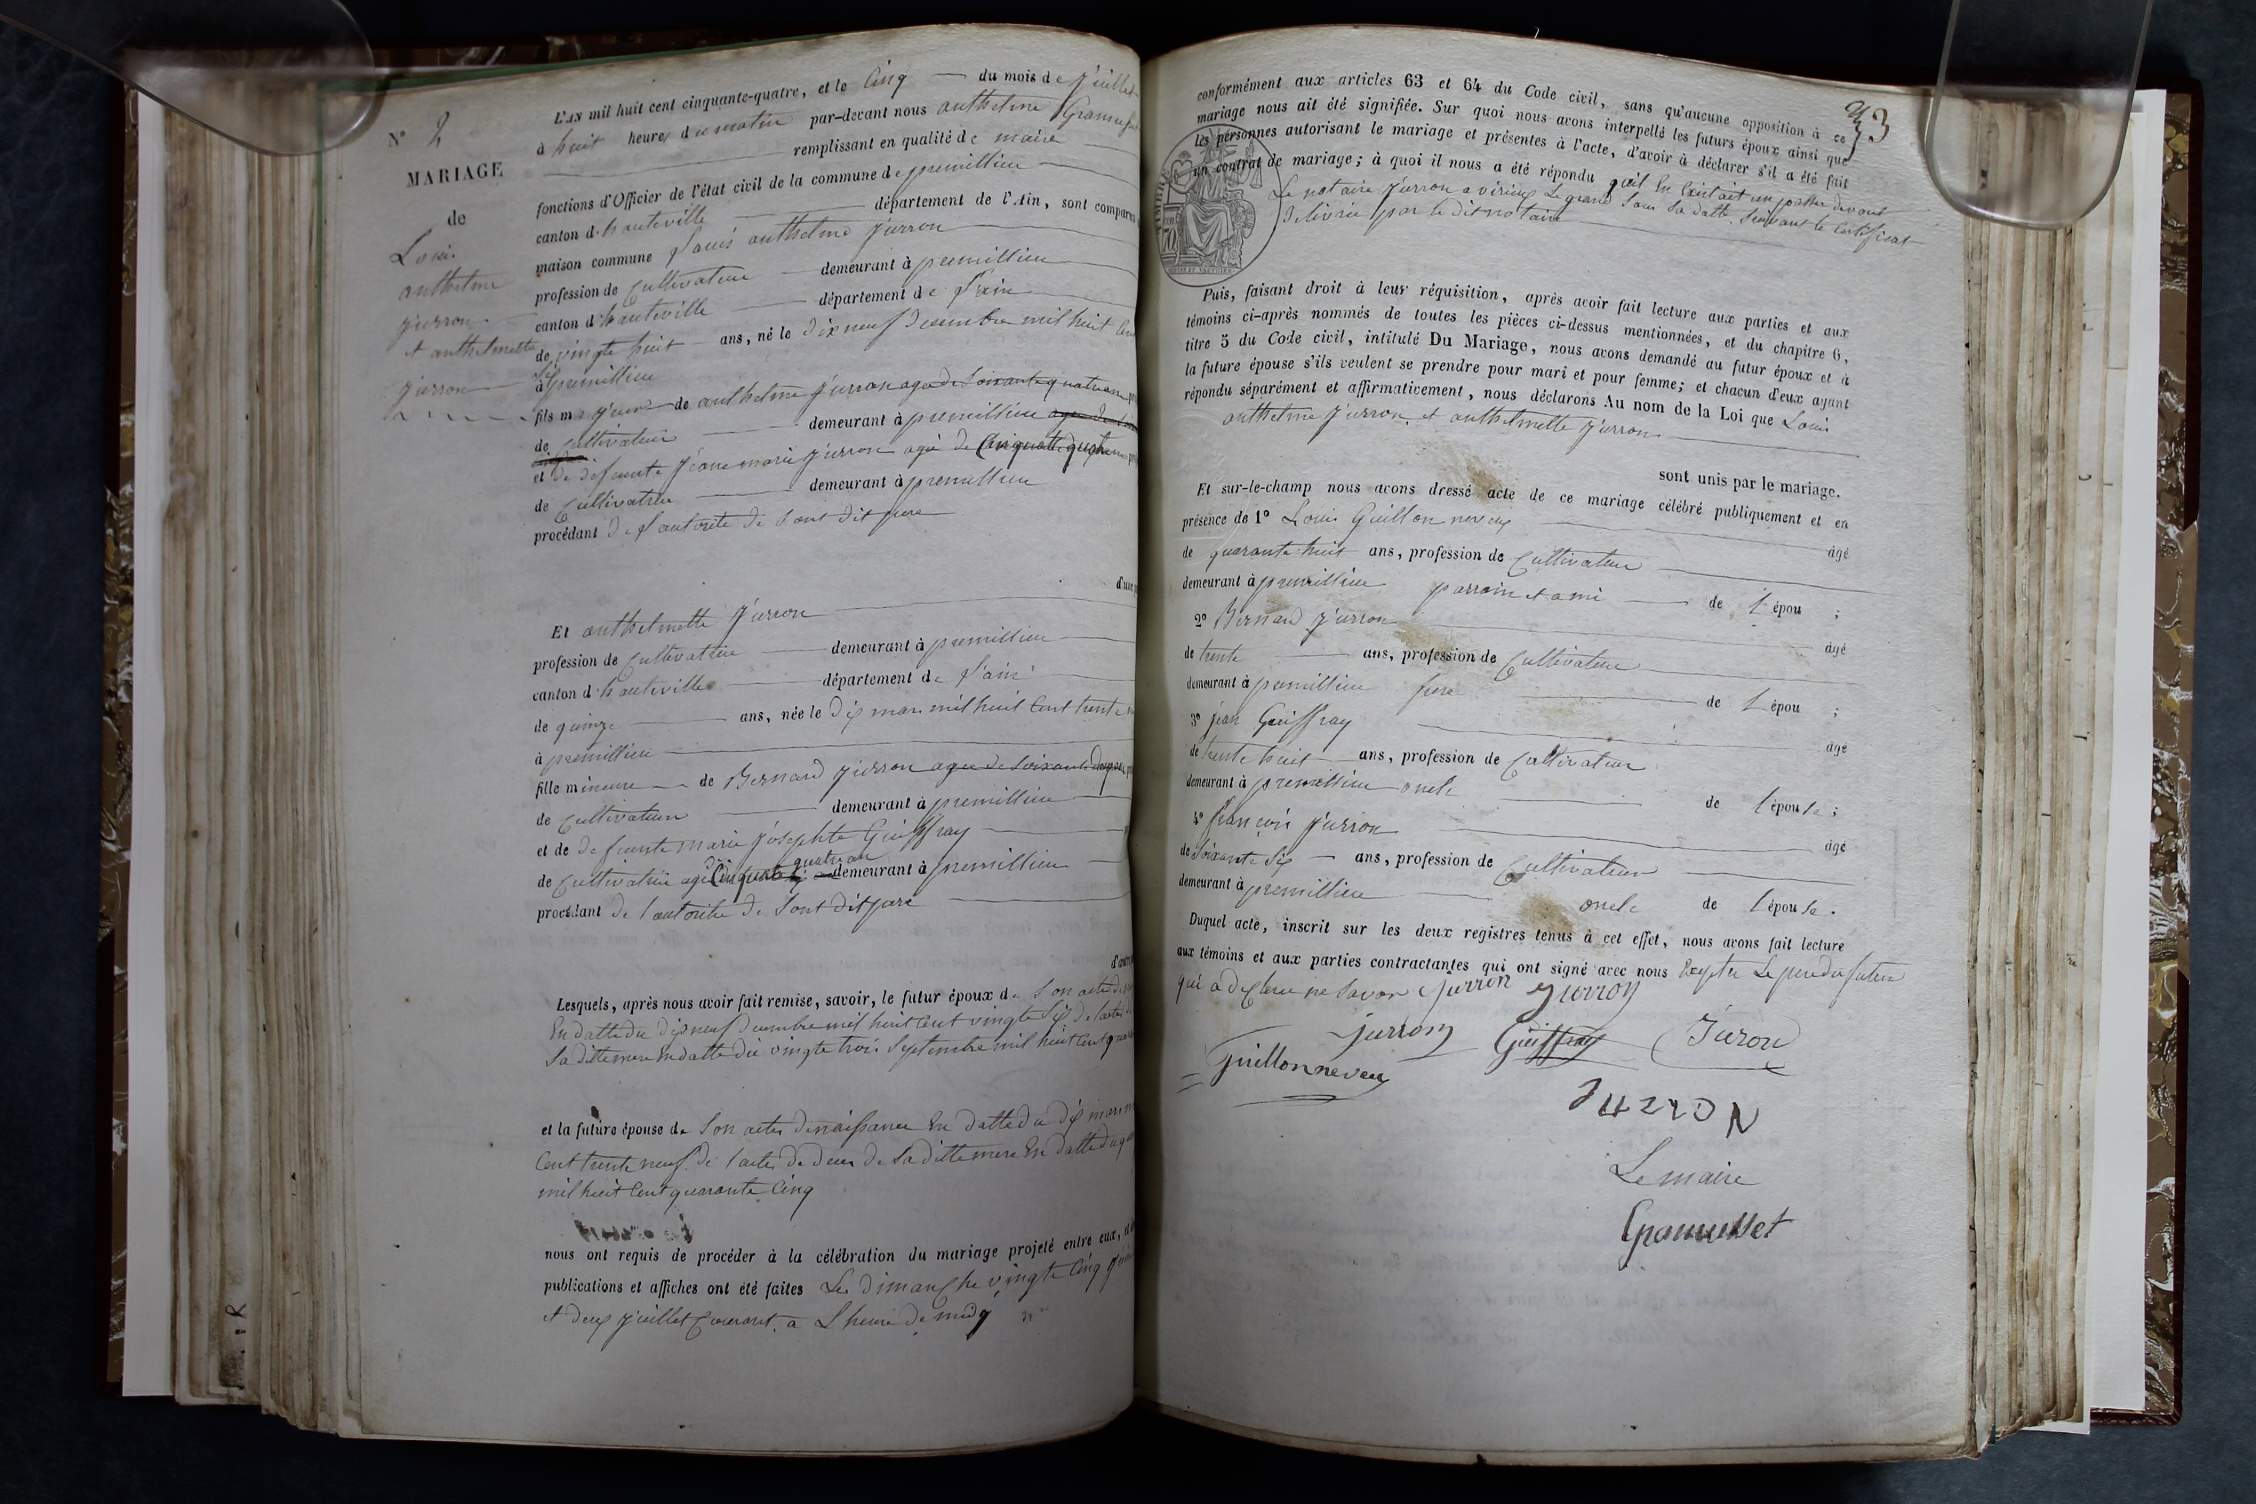 N° 2
MARIAGE
de
Louis
anthelme
Jurron
et anthelmette
Jurron
L'AN mil huit cent cinquante-quatre, et le Cinq du mois de Juillet
à huit heures du matin par-devant nous anthelme
remplissant en qualité de maire
fonctions d'Officier de l'état civil de la commune de premillieu
canton d'hauteville département de l'Ain, sont comparus
maison commune Louis anthelme Jurron
profession de Cultivateur demeurant à premillieu
canton d'hauteville département de l'ain
de vingte huit ans, né le dix neuf decembre mil huit Cent
à premillieu
fils majeur de anthelme Jurron agé de Soixante quatre ans
de Cultivateur demeurant à premillieu
et de defeunte Jeane marie Jurron agée de Cinquante quatre
de Cultivatrice demeurant à premillieu
procédant de l'autorité de Sont dit pere
d'une
Et anthelmette Jurron
profession de Cultivatrice demeurant à premillieu
canton d'hauteville département de l'ain
de quinze ans, née le dix mars mil huit Cent trente
à premillieu
fille mineure de Bernard Jurron agée de Soixante
de Cultivateur demeurant à premillieu
et de defeunte marie Josephte Guiffray
quatre an
de Cultivatrice agée Cinquante demeurant à premillieu
procédant de l'autorité de Sont dit pere
d'autre
Lesquels, après nous avoir fait remise, savoir, le futur époux de Son acte de
En datte du dix neuf decembre mil huit Cent vingte Six de l'actes de
Sa ditte mere En datte du vingte trois Septembre mil huit Cent
et la future épouse de Son actes de naissance En datte du dix mars
Cent trente neuf de l'actes de deces de Sa ditte mere En datte du
mil huit Cent quarante Cinq
nous ont requis de procéder à la célébration du mariage projeté entre eux, et
publications et affiches ont été faites Les dimanche vingte Cinq
et deux Juillet Courant a L'heure de midy
33
conformément aux articles 63 et 64 du Code civil, sans qu'aucune opposition à ce
mariage nous ait été signifiée. Sur quoi nous avons interpellé les futurs époux ainsi que
les personnes autorisant le mariage et présentes à l'acte, d'avoir à déclarer s'il a été fait
un contrat de mariage; à quoi il nous a été répondu quil En Existait un passer devant
Le notaire Jurron a virieux Le grand Sous Sa datte Suivant le Certificat
delivrée par le dit notaire
Puis, faisant droit à leur réquisition, après avoir fait lecture aux parties et aux
témoins ci-après nommés de toutes les pièces ci-dessus mentionnées, et du chapitre 6,
titre 5 du Code civil, intitulé Du Mariage, nous avons demandé au futur époux et à
la future épouse s'ils veulent se prendre pour mari et pour femme; et chacun d'eux ayant
répondu séparément et affirmativement, nous déclarons Au nom de la Loi que Louis
anthelme Jurron et anthelmette Jurron
sont unis par le mariage.
Et sur-le-champ nous avons dressé acte de ce mariage célébré publiquement et en
présence de 1° Louis Guillon neveux âgé
de quarante huit ans, profession de Cultivateur
demeurant à premillieu parrain et ami de l'épou ;
2° Bernard Jurron âgé
de trente ans, profession de Cultivateur
demeurant à premillieu frere de l'épou ;
3° jean Guiffray âgé
de trente huit ans, profession de Cultivateur
demeurant à premillieu oncle de l'épouse ;
4° françois Jurron âgé
de Soixante Six ans, profession de Cultivateur
demeurant à premillieu oncle de l'épouse.
Duquel acte, inscrit sur les deux registres tenus à cet effet, nous avons fait lecture
aux témoins et aux parties contractantes qui ont signé avec nous Excepter Le pere du future
qui a declaré ne Savoir Jurron Jurron
Jurron Guiffray Juron
Guillonneveux
JURRON
Le maire